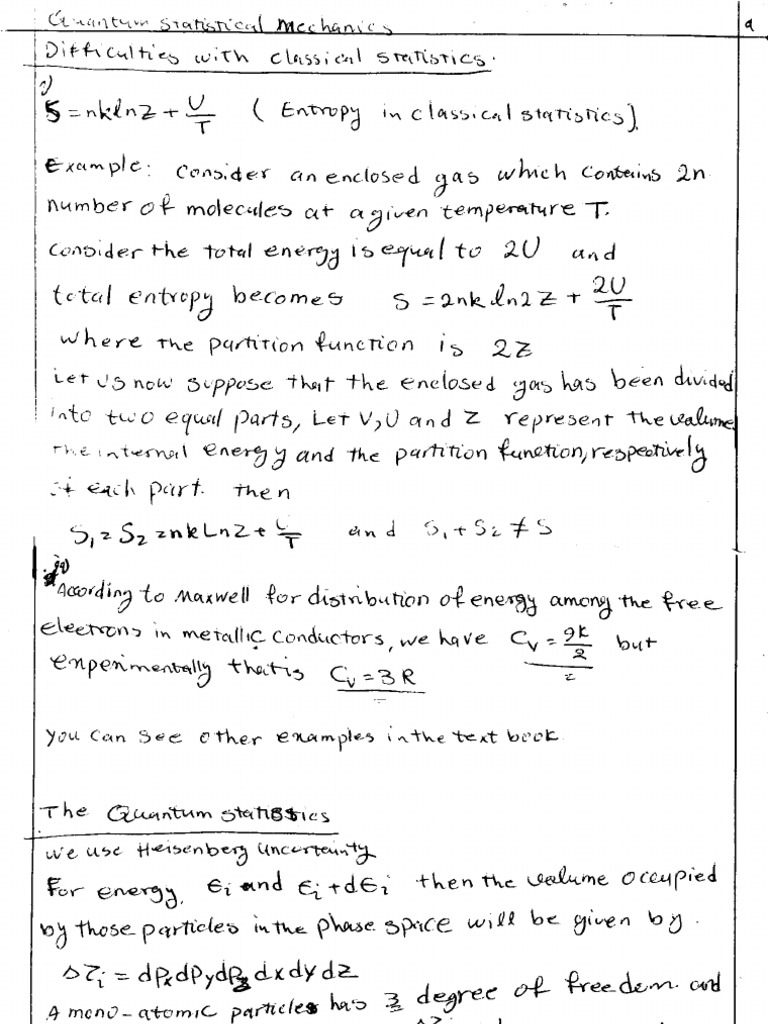 Quantum Statistical Mechanics
a
Difficulties with classical statistics.
i)
S = nk ln Z + U/T ( Entropy in classical statistics).
Example: Consider an enclosed gas which contains 2n
number of molecules at a given temperature T.
Consider the total energy is equal to 2U and
total entropy becomes S = 2nk ln 2Z + 2U/T
where the partition function is 2Z
Let us now suppose that the enclosed gas has been divided
into two equal parts, Let V, U and Z represent the valume
the internal energy and the partition function, respectively
of each part. then
S₁ = S₂ = nk Ln Z + U/T and S₁ + S₂ ≠ S
ii)
According to Maxwell for distribution of energy among the free
electrons in metallic conductors, we have Cv = 9R/2 but
experimentally that is Cv = 3R
you can see other examples in the text book
The Quantum statistics
we use Heisenberg uncertainty
For energy, Ei and Ei + dEi then the valume occupied
by those particles in the phase space will be given by.
Δτi = dPx dPy dPz dx dy dz
A mono-atomic particles has 3 degree of freedom. and